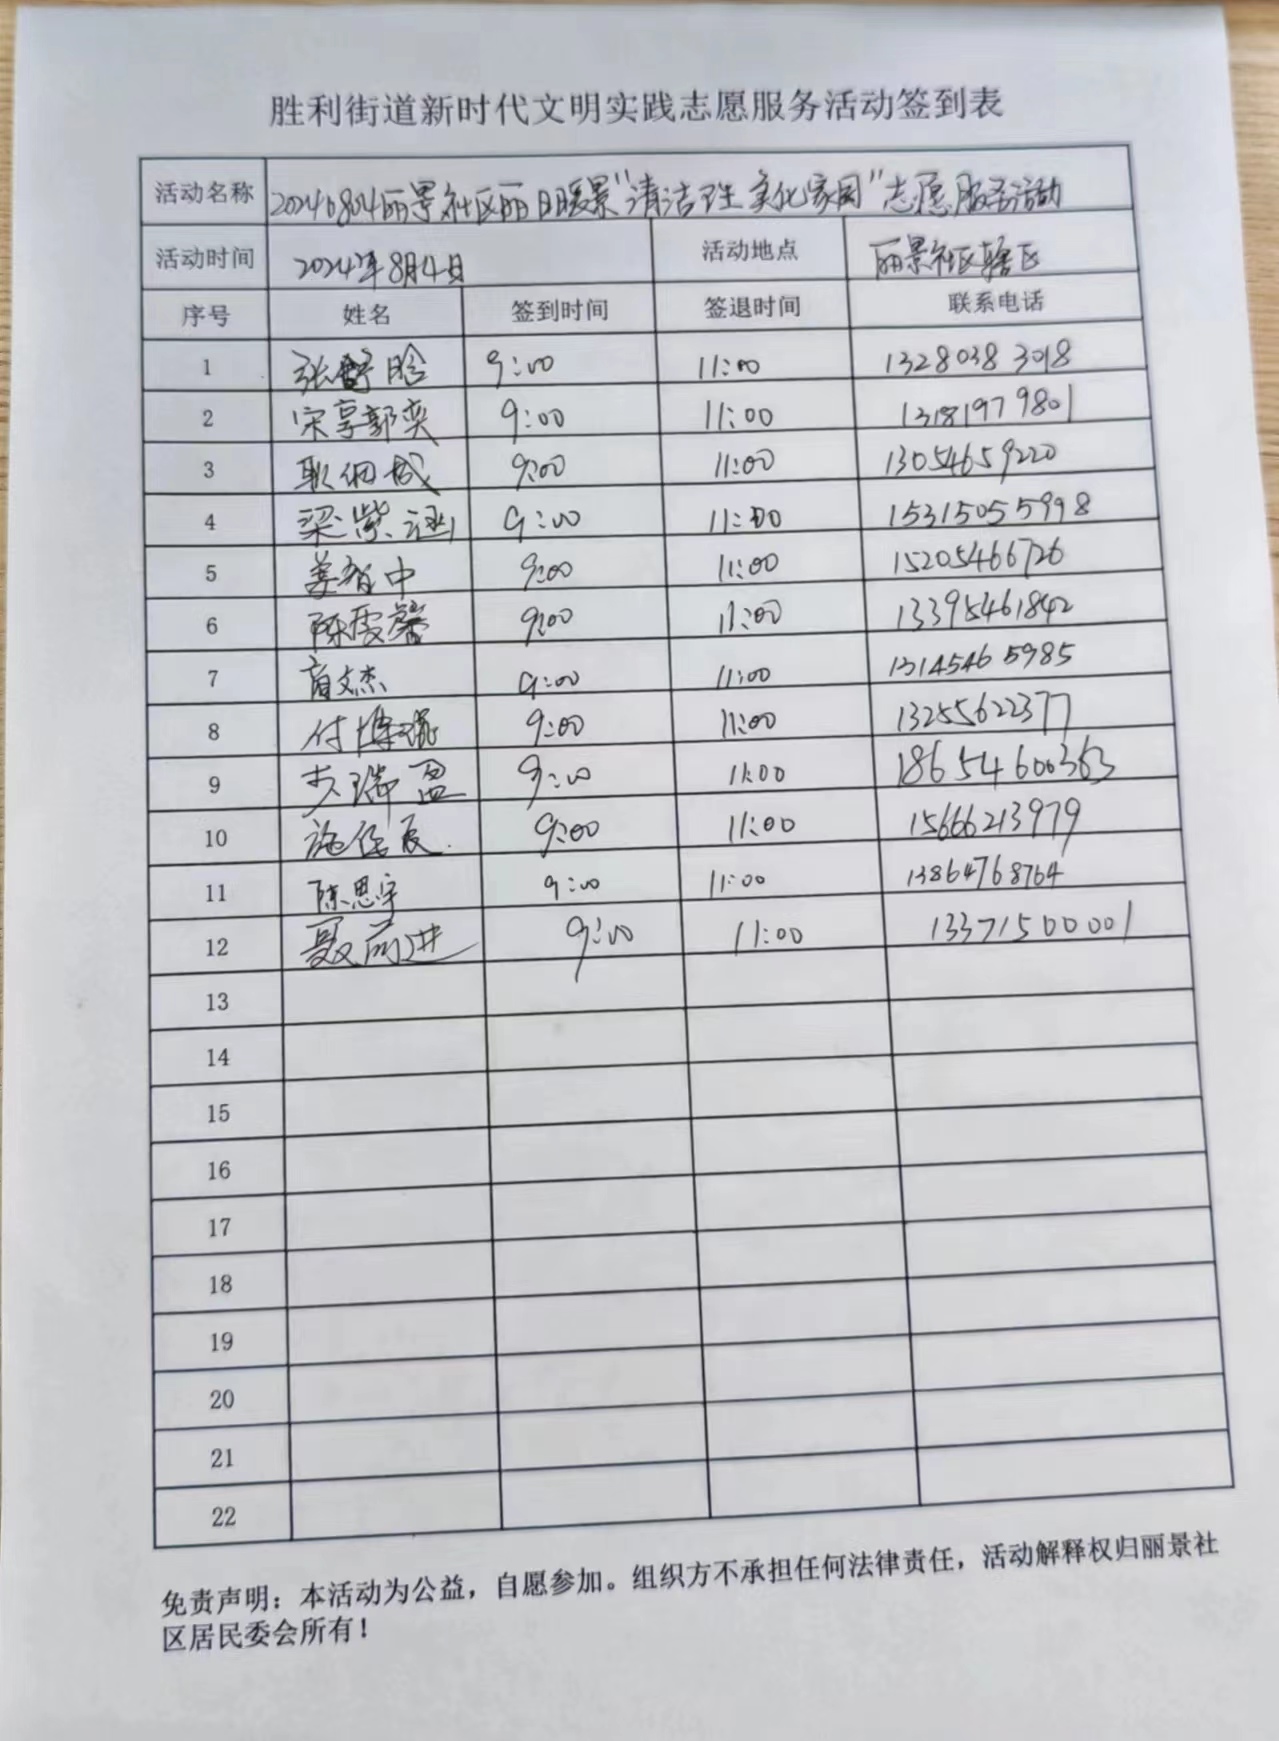 胜利街道新时代文明实践志愿服务活动签到表
活动名称 20240804丽景社区丽日暖景"清洁卫生 美化家园"志愿服务活动
活动时间 2024年8月4日 活动地点 丽景社区辖区
序号 姓名 签到时间 签退时间 联系电话
1 张舒晗 9:00 11:00 13280383018
2 宋享郭奕 9:00 11:00 13181979801
3 9:00 11:00 13054659220
4 梁紫涵 9:00 11:00 15315055998
5 姜智中 9:00 11:00 15205466726
6 陈雯馨 9:00 11:00 13395461842
7 文杰 9:00 11:00 13145465985
8 付博琨 9:00 11:00 13255622377
9 瑞盈 9:00 11:00 18654600363
10 9:00 11:00 15666213979
11 陈思宇 9:00 11:00 13864768764
12 聂前进 9:00 11:00 13371500001
13
14
15
16
17
18
19
20
21
22
免责声明：本活动为公益，自愿参加。组织方不承担任何法律责任，活动解释权归丽景社
区居民委会所有！